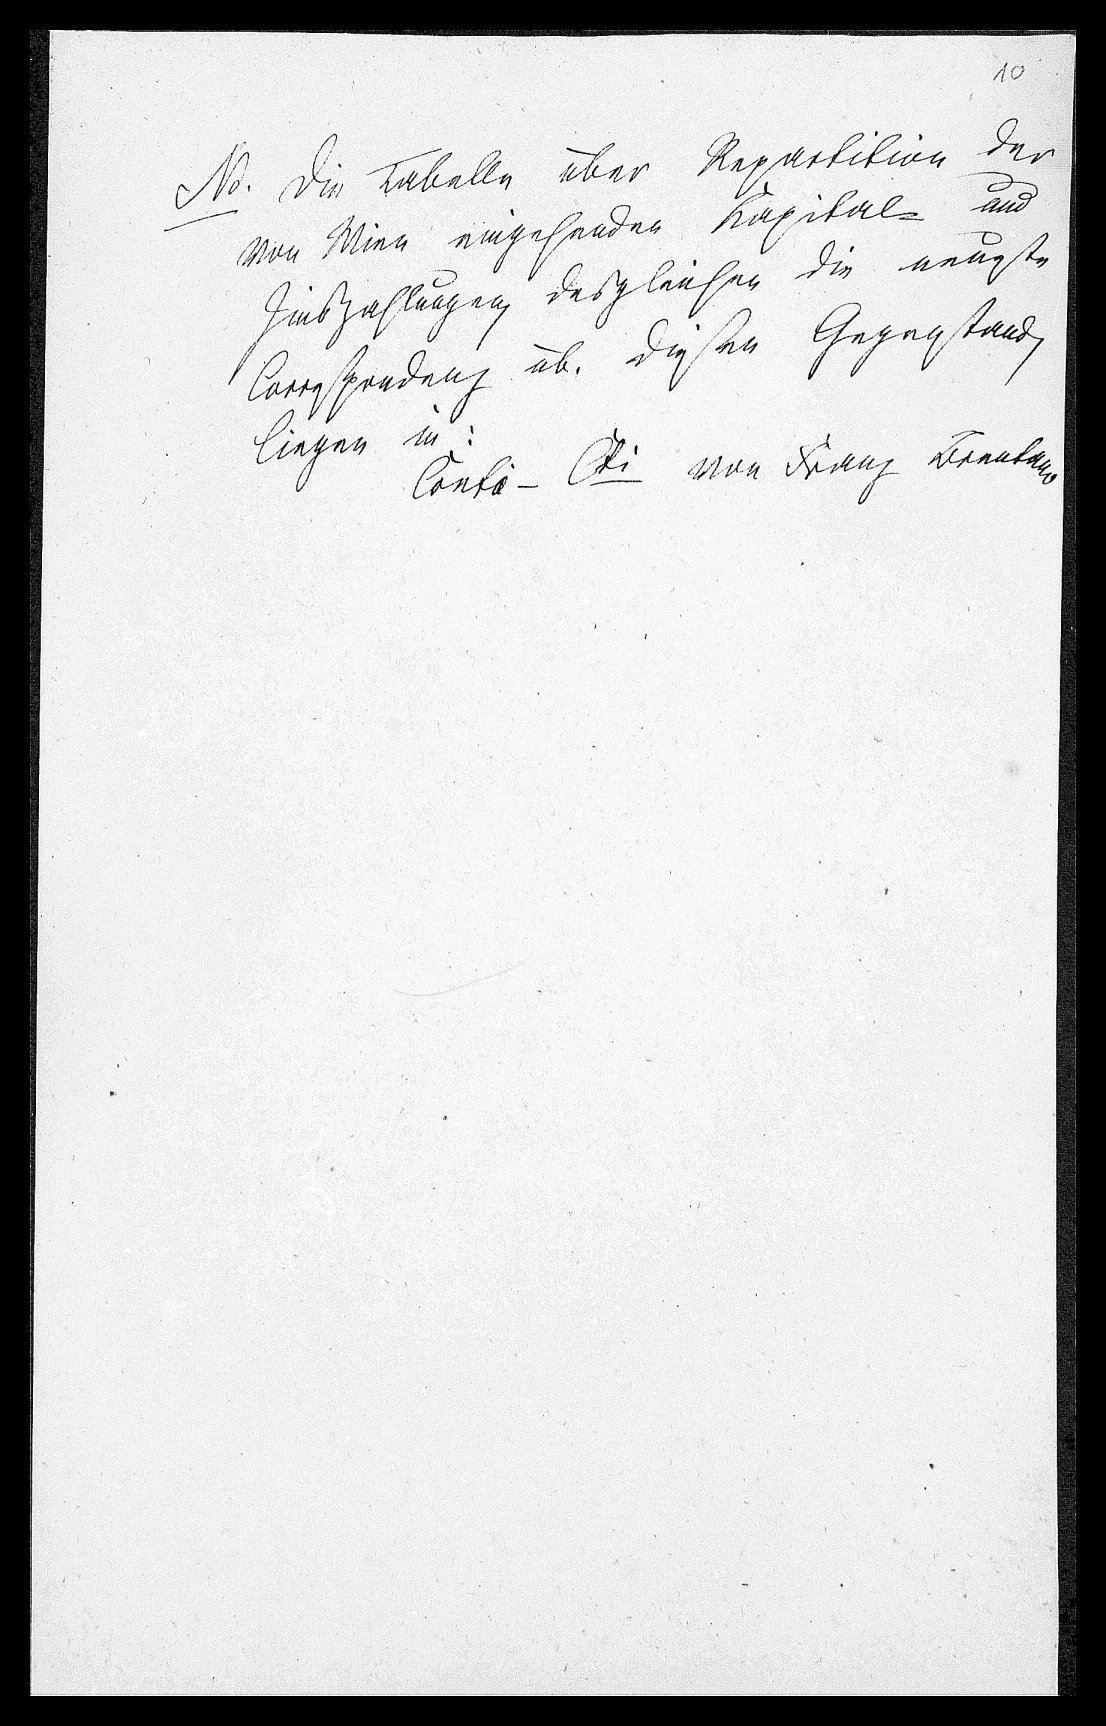 10
NB. Die Tabelle über Repartition der
von Wien eingehenden Kapital= und
Zinszahlungen, desgleichen die neueste
Correspondenz üb. diesen Gegenstand,
liegen in:
Conto- von Franz Brentano